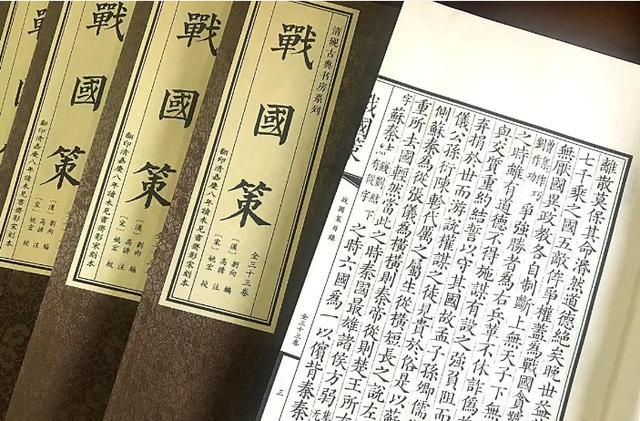 戰國策
戰國策
戰國策
翻印清嘉慶八年讀未見書齋影宋刻本
翻印清嘉慶八年讀未見書齋影宋刻本
清硯古典书房系列
戰國策
全三十三卷
〔漢〕劉向 編
〔宋〕高誘 注
姚宏 校
翻印清嘉慶八年讀未見書齋影宋刻本
離散莫保其命湣然道德絕矣晚世益
七千乘之國五敵侔爭權蓋為戰國貪
無厭國異政教各自制斷上無天子下無
爭強勝者為右兵革不休詐偽
之時雖有道德不得施謀有設之強負阻而
與交質重約結誓以守其國故孟子孫卿儒
弃捐於世而游說權謀之徒見貴於俗是以蘇
儀公孫衍陳軫代厲之屬生從橫短長之說左
傾蘇秦為從張儀為橫橫則秦帝從則楚王所
重所去國輕然當此之時秦國最雄諸侯方弱
蘇秦結之時六國為一以儐背秦秦
戰國策
战国策目錄
全三十三卷
三